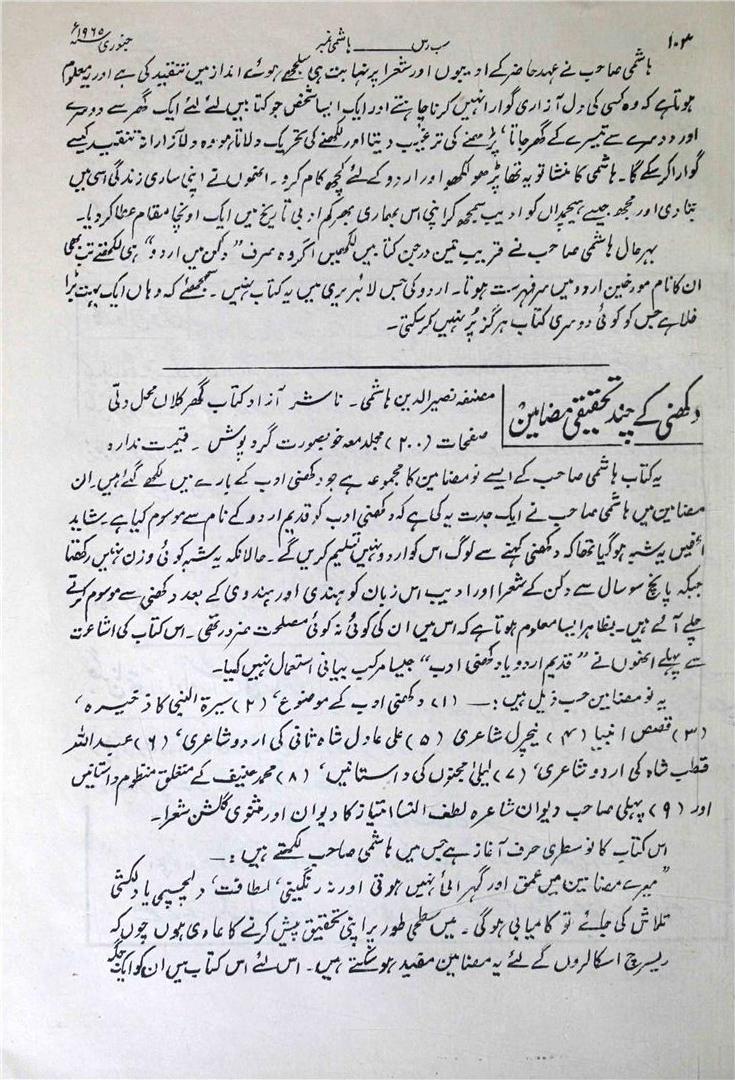 ۱۰۳ سب رس ـــــ ہاشمی نمبر جنوری سنہ ۱۹۶۵ء
ہاشمی صاحب نے عہد حاضر کے ادیبوں اور شعرا پر نہایت ہی سلجھے ہوئے انداز میں تنقید کی ہے اور یہ معلوم
ہوتا ہے کہ وہ کسی کی دل آزاری گوارا نہیں کرنا چاہتے اور ایک ایسا شخص جو کتابیں لئے لئے ایک گھر سے دوسرے
اور دوسرے سے تیسرے کے گھر جاتا، پڑھنے کی ترغیب دیتا اور لکھنے کی تحریک دلاتا ہو وہ دلآزارانہ تنقید کیسے
گوارا کر سکے گا۔ ہاشمی کا منشا تو یہ تھا پڑھو لکھو اور اردو کے لئے کچھ کام کرو۔ انھوں نے اپنی ساری زندگی اسی میں
بتا دی اور مجھ جیسے ہیچمداں کو ادیب سمجھ کر اپنی اس بھاری بھرکم ادبی تاریخ میں ایک اونچا مقام عطا کر دیا۔
بہرحال ہاشمی صاحب نے قریب تین درجن کتابیں لکھیں اگر وہ صرف "دکن میں اردو" ہی لکھتے تب بھی
ان کا نام مورخین اردو میں سرفہرست ہوتا۔ اردو کی جس لائبریری میں یہ کتاب نہیں۔ سمجھئے کہ وہاں ایک بہت بڑا
خلا ہے جس کو کوئی دوسری کتاب ہرگز پُر نہیں کر سکتی۔
دکھنی کے چند تحقیقی مضامین
مصنفہ نصیر الدین ہاشمی۔ ناشر آزاد کتاب گھر کلاں محل دلی
صفحات (۲۰۰) مجلد معہ خوبصورت گرد پوش۔ قیمت ندارد
یہ کتاب ہاشمی صاحب کے ایسے نو مضامین کا مجموعہ ہے جو دکھنی ادب کے بارے میں لکھے گئے ہیں۔ ان
مضامین میں ہاشمی صاحب نے ایک جدت یہ کی ہے کہ دکھنی ادب کو قدیم اردو کے نام سے موسوم کیا ہے۔ شاید
انھیں یہ شبہ ہو گیا تھا کہ دکھنی کہنے سے لوگ اس کو اردو نہیں تسلیم کریں گے۔ حالانکہ یہ شبہ کوئی وزن نہیں رکھتا
جبکہ پانچ سو سال سے دکن کے شعرا اور ادیب اس زبان کو ہندی اور ہندوی کے بعد دکھنی سے موسوم کرتے
چلے آئے ہیں۔ بظاہر ایسا معلوم ہوتا ہے کہ اس میں ان کی کوئی نہ کوئی مصلحت ضرور تھی۔ اس کتاب کی اشاعت
سے پہلے انھوں نے "قدیم اردو یا دکھنی ادب" جیسا مرکب بیانی استعمال نہیں کیا۔
یہ نو مضامین حسب ذیل ہیں:ــ (۱) دکھنی ادب کے موضوع، (۲) سیرۃ النبی کا ذخیرہ،
(۳) قصص انبیا (۴) نیچرل شاعری (۵) علی عادل شاہ ثانی کی اردو شاعری، (۶) عبداللہ
قطب شاہ کی اردو شاعری، (۷) لیلیٰ مجنوں کی داستانیں، (۸) محمد حنیف کے متعلق منظوم داستانیں
اور (۹) پہلی صاحب دیوان شاعرہ لطف النسا امتیاز کا دیوان اور مثنوی گلشن شعرا۔
اس کتاب کا نو سطری حرف آغاز ہے جس میں ہاشمی صاحب لکھتے ہیں:ــ
"میرے مضامین میں عمق اور گہرائی نہیں ہوتی اور نہ رنگینی، لطافت، دلچسپی یا دلکشی
تلاش کی جائے تو کامیابی ہو گی۔ میں سطحی طور پر اپنی تحقیق پیش کرنے کا عادی ہوں چوں کہ
ریسرچ اسکالروں کے لئے یہ مضامین مفید ہو سکتے ہیں۔ اس لئے اس کتاب میں ان کو ایک جگہ